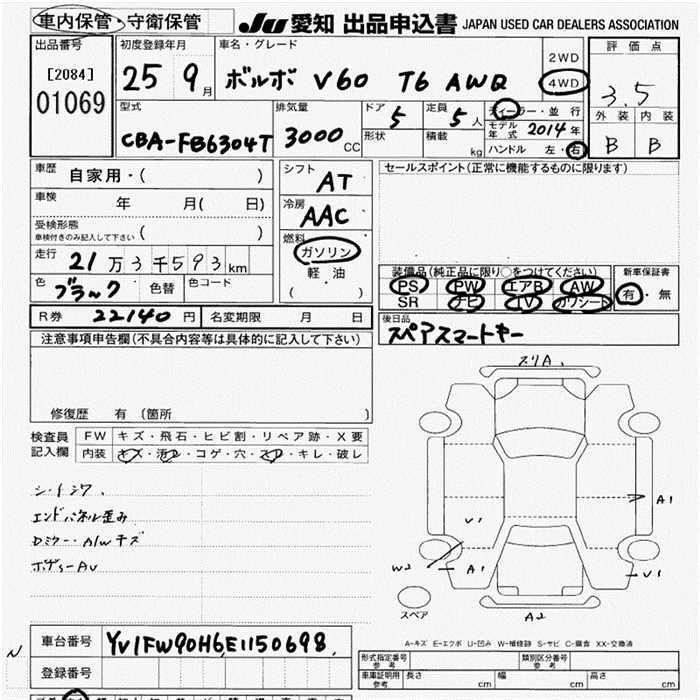 車内保管・守衛保管 JU 愛知 出品申込書 JAPAN USED CAR DEALERS ASSOCIATION
出品番号 初度登録年月 車名・グレード 2WD 評価点
[2084] 25 9月 ボルボ V60 T6 AWD 4WD 3.5
01069 外装 内装
型式 排気量 ドア 定員 ディーラー・並行 B B
CBA-FB6304T 3000CC 5 5人 モデル年式 2014年
形状 積載 kg ハンドル 左・右
車歴 自家用・( ) シフト AT セールスポイント(正常に機能するものに限ります)
車検 年 月( 日) 冷房 AAC
受検形態 車検付きのみ記入して下さい ( ) 燃料
走行 21万3千593km ガソリン 装備品(純正品に限り○をつけてください) 新車保証書
色 ブラック 色替 色コード 軽油 PS PW エアB AW 有・無
( ・ ) SR ナビ TV カワシート
R券 22140円 名変期限 月 日 後日品
スペアスマートキー
注意事項申告欄(不具合内容等は具体的に記入して下さい)
スリA、
修復歴 有(箇所 )
検査員 FW キズ・飛石・ヒビ割・リペア跡・X要
記入欄 内装 キズ・汚レ・コゲ・穴・スレ・キレ・破レ
シートシワ、
A1
エンドパネル歪み
V1
Dミラー・A/Wキズ
W2 A1 V1
ボディーAU
スペア A2
A-キズ E-エクボ U-凹み W-補修跡 S-サビ C-腐食 XX-交換済
N 車台番号 YV1FW90H6E1150698
登録番号 形式指定番号 参考 類別区分番号 参考
車庫証明用 参考 長さ cm 幅 cm 高さ cm